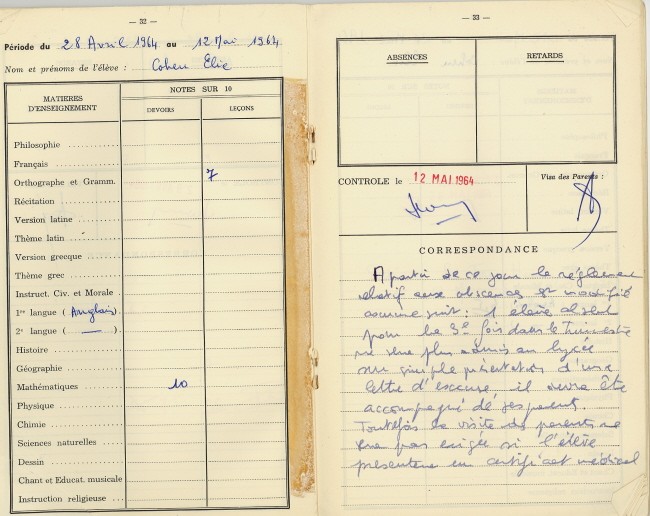 — 32 —
Période du 28 Avril 1964 au 12 Mai 1964
Nom et prénoms de l'élève : Cohen Elie
MATIERES D'ENSEIGNEMENT
NOTES SUR 10
DEVOIRS
LEÇONS
Philosophie
Français
Orthographe et Gramm. 7
Récitation
Version latine
Thème latin
Version grecque
Thème grec
Instruct. Civ. et Morale
1re langue ( Anglais )
2e langue ( — )
Histoire
Géographie
Mathématiques 10
Physique
Chimie
Sciences naturelles
Dessin
Chant et Educat. musicale
Instruction religieuse
— 33 —
ABSENCES
RETARDS
CONTROLE le 12 MAI 1964
Visa des Parents :
CORRESPONDANCE
A partir de ce jour le réglement
relatif aux absences est modifié
comme suit : 1 élève absent
pour la 3e fois dans le trimestre
ne sera plus admis au lycée
sur simple présentation d'une
lettre d'excuse il devra être
accompagné de ses parents.
Toutefois la visite des parents ne
sera pas exigée si l'élève
présentera un certificat médical